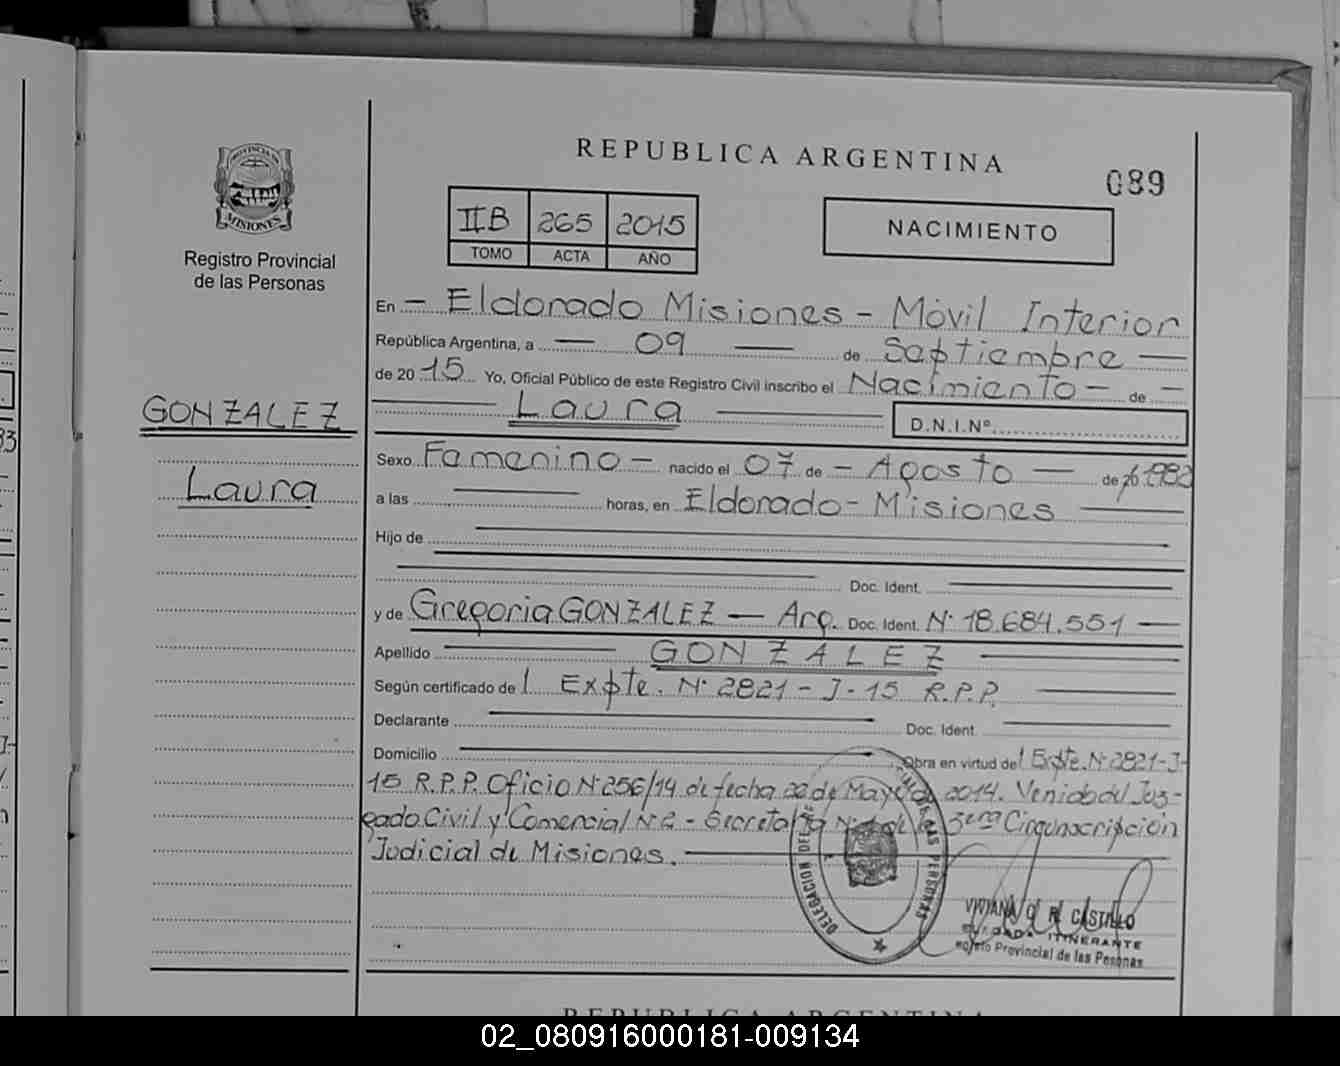 REPUBLICA ARGENTINA
089
PROVINCIA DE
MISIONES
Registro Provincial
de las Personas
IIB 265 2015
TOMO ACTA AÑO
NACIMIENTO
En - Eldorado Misiones - Móvil Interior
República Argentina, a — 09 — de Septiembre —
de 20 15 Yo, Oficial Público de este Registro Civil inscribo el Nacimiento - de —
Laura
D.N.I.Nº
GONZALEZ
Laura
Sexo Femenino - nacido el 07 de - Agosto — de 20 1982
a las — horas, en Eldorado - Misiones —
Hijo de
Doc. Ident.
y de Gregoria GONZALEZ — Arg. Doc. Ident. Nº 18.684.551 —
Apellido — GONZALEZ —
Según certificado de | Expte. Nº 2821 - J - 15 R.P.P. —
Declarante — Doc. Ident. —
Domicilio — Obra en virtud de | Expte. Nº 2821-J-
15 R.P.P. Oficio Nº 256/14 de fecha 22 de Mayo de 2014. Venido del Juz-
gado Civil y Comercial Nº 2 - Secretaría Nº 1 de la 3era Circunscripción
Judicial de Misiones. —
DELEGACION DEL
DE LAS PERSONAS
VIVIANA R. CASTILLO
ITINERANTE
Provincial de las Personas
REPUBLICA ARGENTINA
02_080916000181-009134